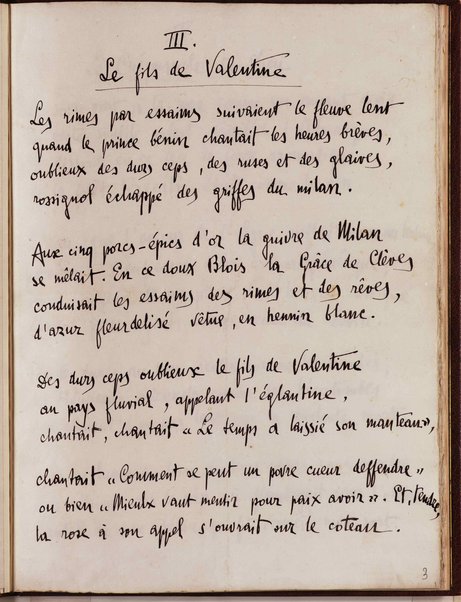 III.
Le fils de Valentine
Les rimes par essaims suivaient le fleuve lent
quand le prince bénin chantait les heures brèves,
oublieux des durs ceps, des ruses et des glaives,
rossignol échappé des griffes du milan.
Aux cinq porcs-épics d'or la guivre de Milan
se mêlait. En ce doux Blois la Grâce de Clèves
conduisait les essaims des rimes et des rêves,
d'azur fleurdelisé vêtue, en hennin blanc.
Des durs ceps oublieux le fils de Valentine
au pays fluvial, appelant l'églantine,
chantait, chantait « Le temps a laissié son manteau »,
chantait « Comment se peut un povre cueur deffendre »
ou bien « Mieulx vaut mentir pour paix avoir ». Et, tendre,
la rose à son appel s'ouvrait sur le coteau.
3